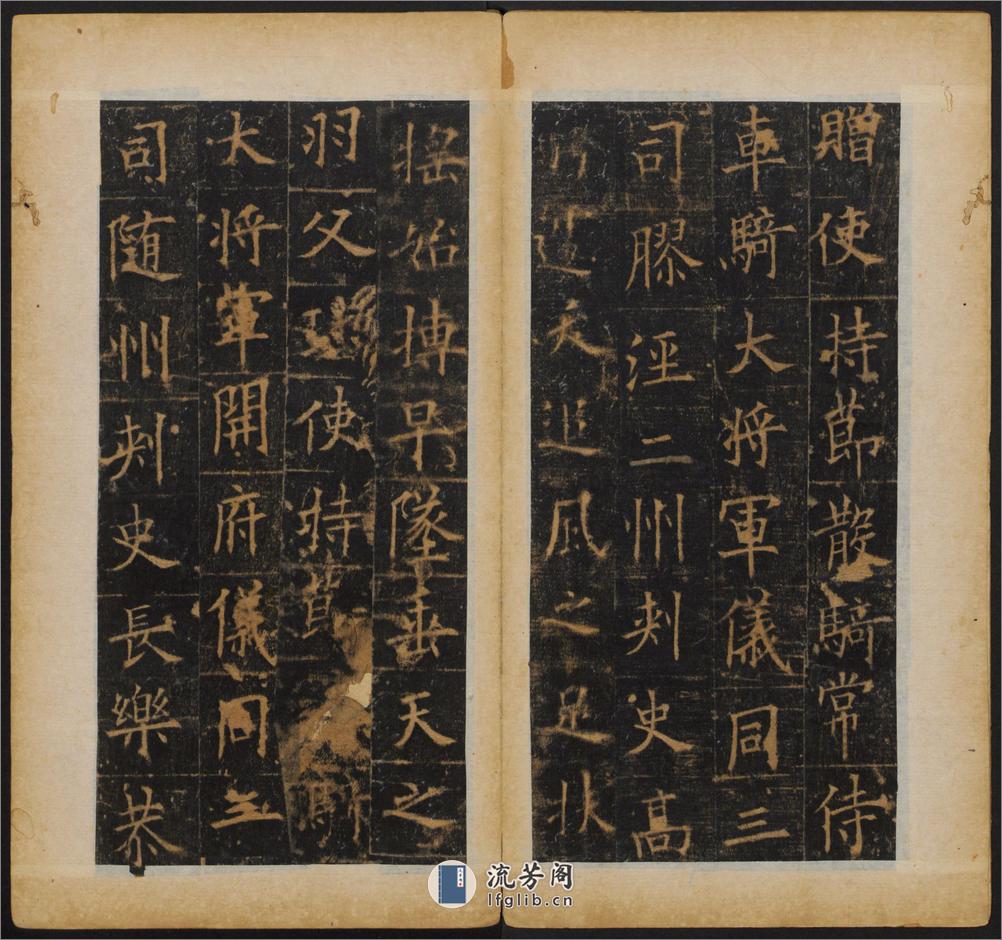 贈使持節散騎常侍
車騎大將軍儀同三
司膠涇二州刺史高
夭追風之足扶
搖始摶早墜垂天之
羽父璠使持節
大將軍開府儀同三
司隨州刺史長樂恭
流芳阁
lfglib.cn